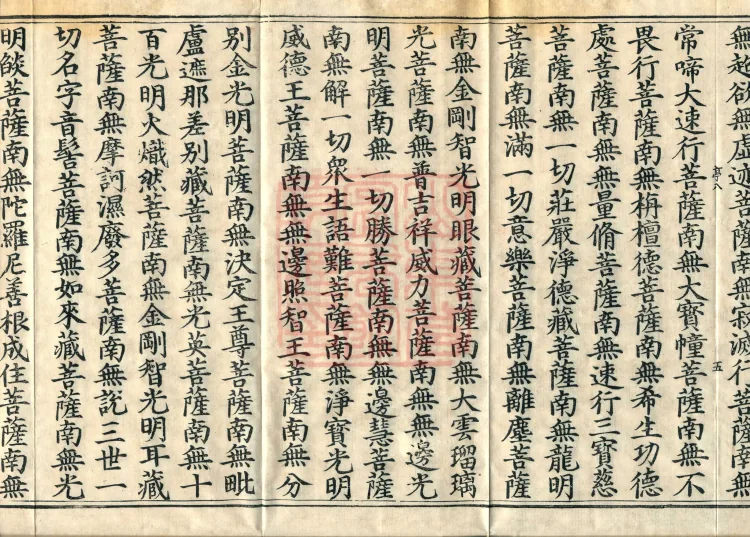 無起欲無虛迹菩薩南無寂滅行菩薩南無
亭八
五
常啼大速行菩薩南無大寶幢菩薩南無不
畏行菩薩南無栴檀德菩薩南無希生功德
處菩薩南無無量脩菩薩南無速行三寶慈
菩薩南無一切莊嚴淨德藏菩薩南無龍明
菩薩南無滿一切意樂菩薩南無離塵菩薩
南無金剛智光明眼藏菩薩南無大雲瑠璃
光菩薩南無普吉祥威力菩薩南無無邊光
明菩薩南無一切勝菩薩南無無邊慧菩薩
南無解一切衆生語難菩薩南無淨寶光明
威德王菩薩南無無邊照智王菩薩南無分
別金光明菩薩南無決定王尊菩薩南無毗
盧遮那差別藏菩薩南無光英菩薩南無十
百光明火熾然菩薩南無金剛智光明耳藏
菩薩南無摩訶濕廢多菩薩南無說三世一
切名字音髻菩薩南無如來藏菩薩南無光
明燄菩薩南無陀羅尼善根成住菩薩南無